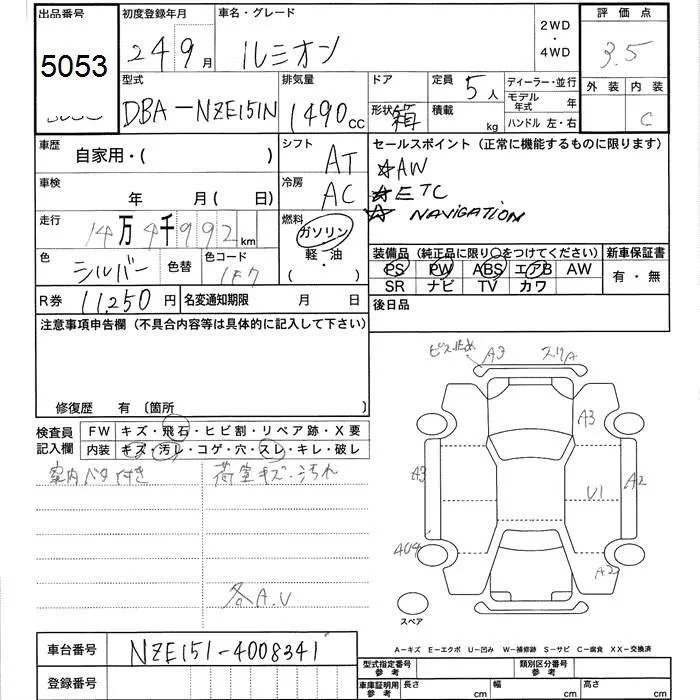 出品番号 初度登録年月 車名・グレード 2WD・4WD 評価点
5053 24 9月 ルミオン 3.5
型式 排気量 ドア 定員 5人 ディーラー・並行 外装 内装
DBA-NZE151N 1490cc 形状 箱 積載 kg モデル年式 年 C
ハンドル 左・右
車歴 自家用・( ) シフト AT セールスポイント(正常に機能するものに限ります)
車検 年 月(日) 冷房 AC ☆AW
☆ETC
走行 14万4千992km 燃料 ガソリン ☆NAVIGATION
軽・油
( )
色 シルバー 色替 色コード 1F7 装備品(純正品に限り○をつけてください) 新車保証書
PS PW ABS エアB AW 有・無
SR ナビ TV カワ
R券 11,250円 名変通知期限 月 日 後日品
注意事項申告欄(不具合内容等は具体的に記入して下さい)
修復歴 有〔箇所
検査員記入欄 FW キズ・飛石・ヒビ割・リペア跡・X要
内装 キズ・汚レ・コゲ・穴・スレ・キレ・破レ
室内 荷室キズ・汚れ
各A.U
ビス止め A3 スリA
A3
A3 U1 A2
A2
スペア
A-キズ E-エクボ U-凹み W-補修跡 S-サビ C-腐食 XX-交換済
車台番号 NZE151-4008341 型式指定番号参考 類別区分番号参考
登録番号 車庫証明用参考 長さ cm 幅 cm 高さ cm